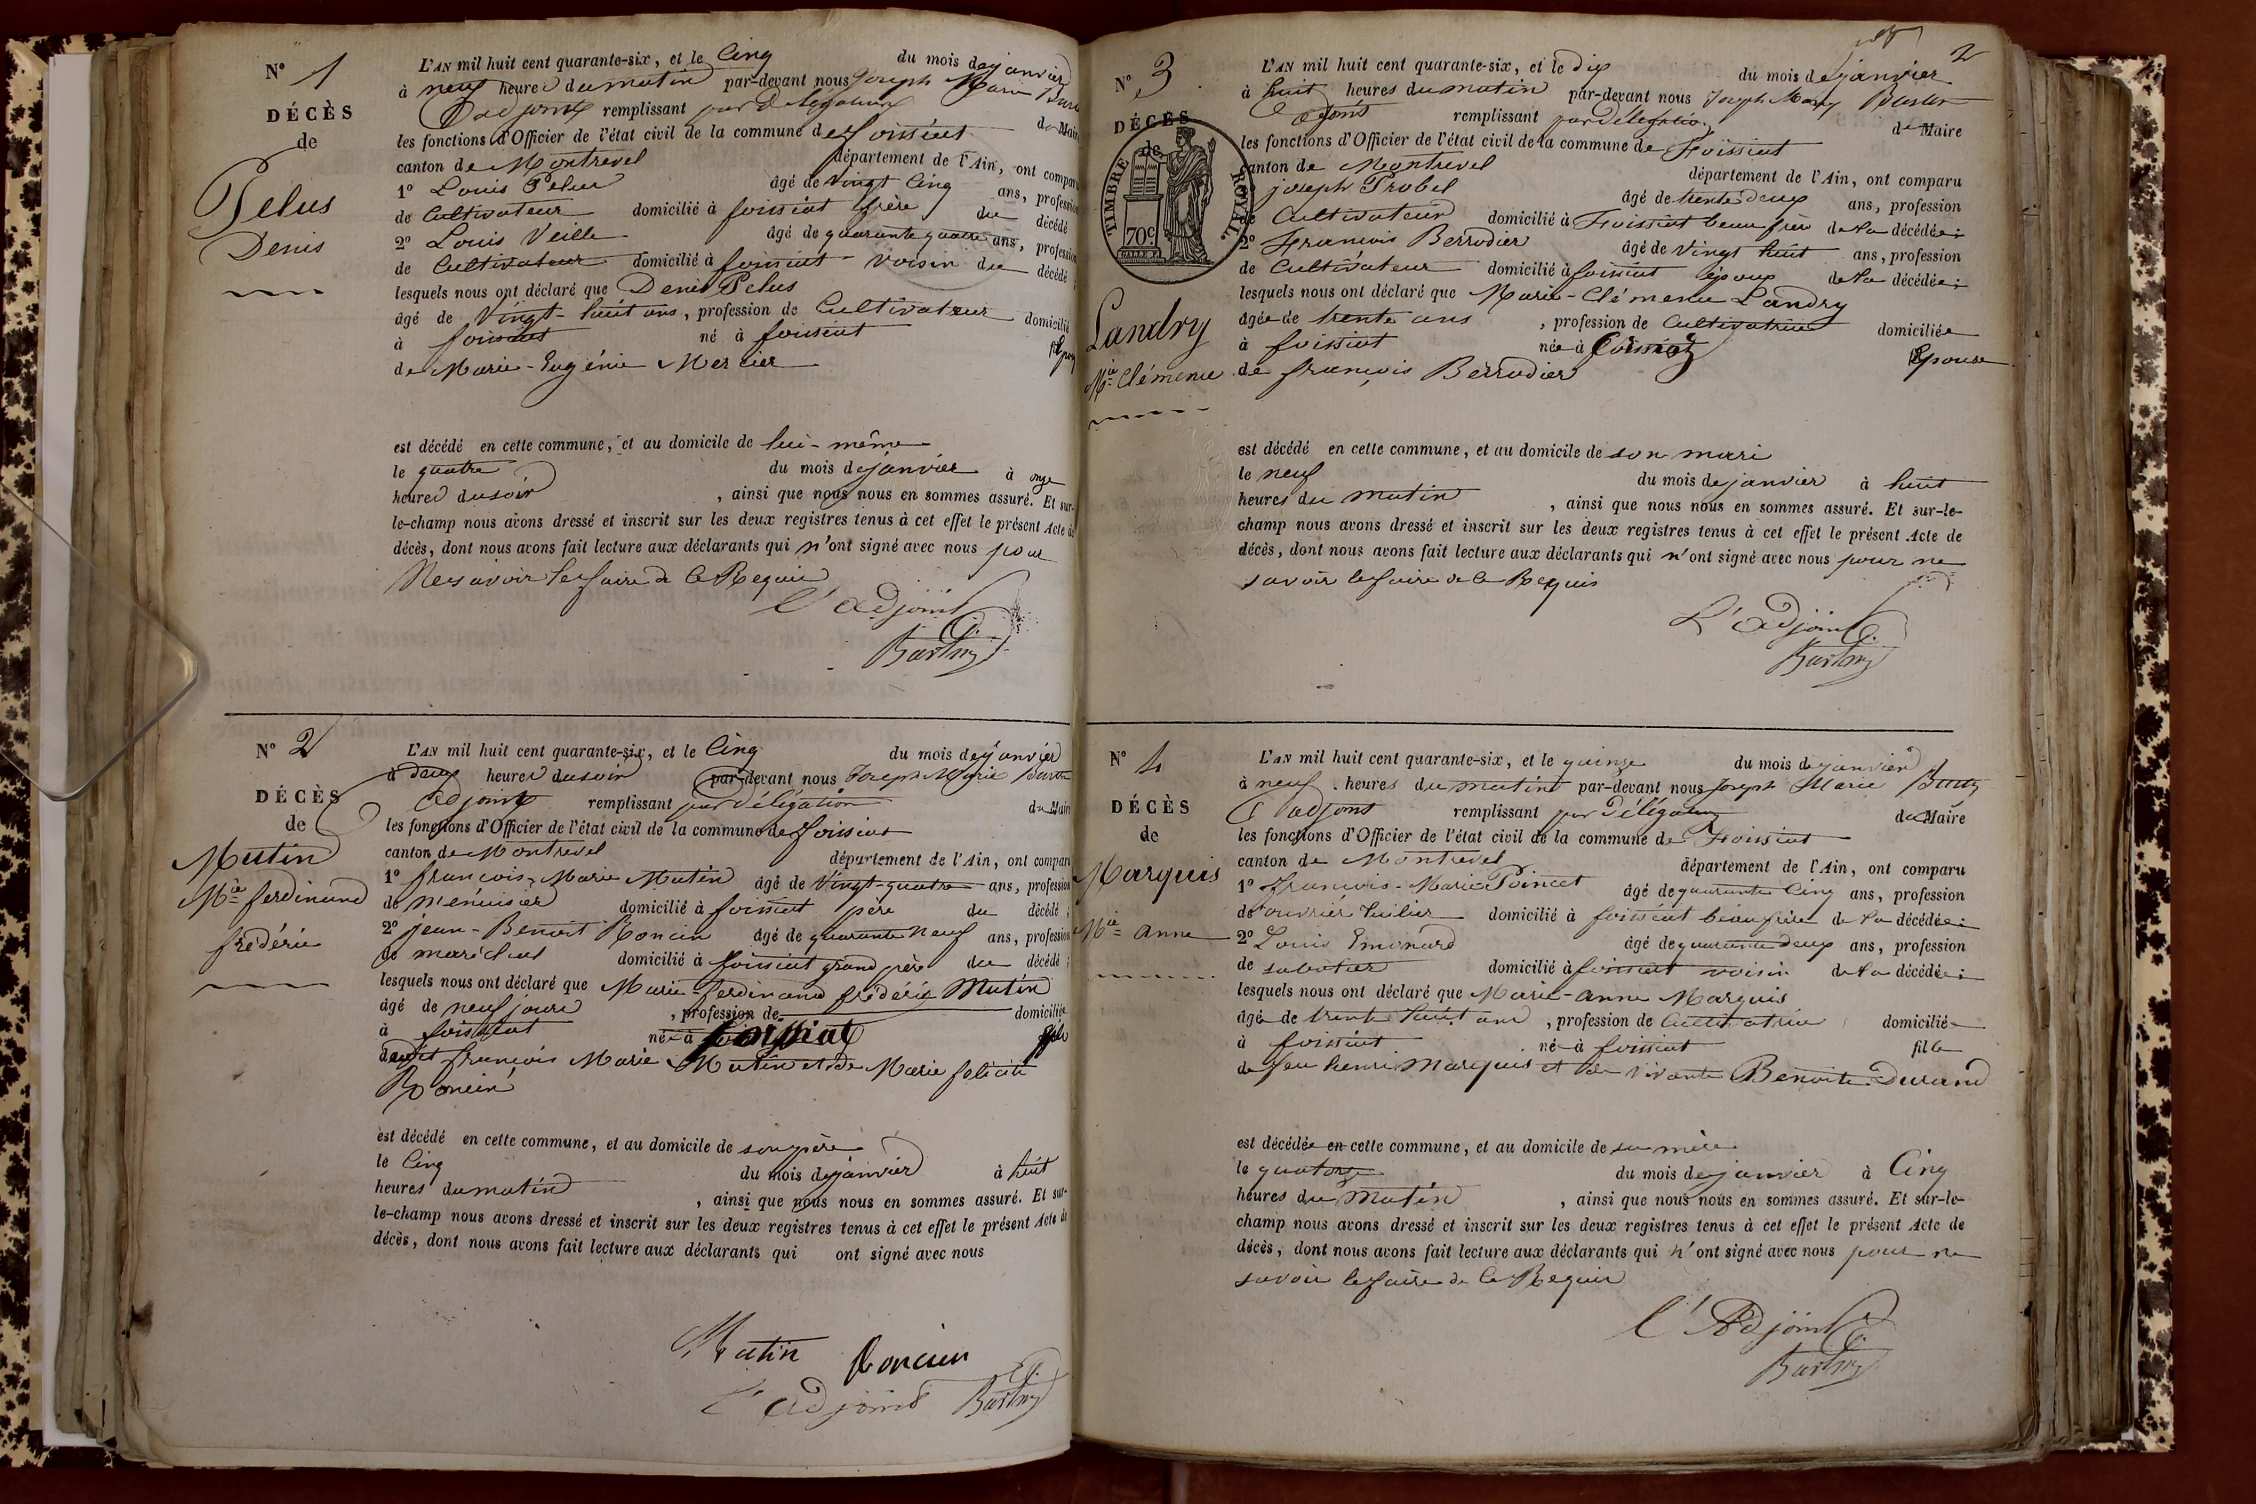 N° 1
DÉCÈS
de
Pelus
Denis
L'AN mil huit cent quarante-six, et le Cinq du mois de janvier
à neuf heures du matin par-devant nous Joseph Marie
adjoint remplissant par Délégation de Maire
les fonctions d'Officier de l'état civil de la commune de foissiat
canton de Montrevel département de l'Ain, ont comparu
1° Louis Pelus âgé de vingt Cinq ans, profession
de Cultivateur domicilié à foissiat frère du décédé
2° Louis Veille âgé de quarante quatre ans, profession
de Cultivateur domicilié à foissiat voisin du décédé ;
lesquels nous ont déclaré que Denis Pelus
âgé de Vingt-huit ans, profession de Cultivateur domicilié
à foissiat né à foissiat époux
de Marie-Eugénie Mercier
est décédé en cette commune, et au domicile de lui-même
le quatre du mois de janvier à onze
heures du soir , ainsi que nous nous en sommes assuré. Et sur-
le-champ nous avons dressé et inscrit sur les deux registres tenus à cet effet le présent Acte de
décès, dont nous avons fait lecture aux déclarants qui n'ont signé avec nous pour
Ne savoir le faire de ce Requis
L'adjoint
N° 2
DÉCÈS
de
Mutin
M.ie ferdinand
frédéric
L'AN mil huit cent quarante-six, et le Cinq du mois de janvier
à deux heures du soir par-devant nous Joseph Marie
adjoint remplissant par délégation du Maire
les fonctions d'Officier de l'état civil de la commune de foissiat
canton de Montrevel département de l'Ain, ont comparu
1° françois-Marie Mutin âgé de Vingt-quatre ans, profession
de menuisier domicilié à foissiat père du décédé ;
2° jean-Benoit Roncin âgé de quarante neuf ans, profession
de maréchal domicilié à foissiat grand père du décédé ;
lesquels nous ont déclaré que Marie-ferdinand frédéric Mutin
âgé de neuf jours , profession de domicilié
à foissiat né à foissiat fils
dudit françois Marie Mutin et de Marie felicité
Roncin
est décédé en cette commune, et au domicile de son père
le Cinq du mois de janvier à huit
heures du matin , ainsi que nous nous en sommes assuré. Et sur-
le-champ nous avons dressé et inscrit sur les deux registres tenus à cet effet le présent Acte de
décès, dont nous avons fait lecture aux déclarants qui ont signé avec nous
Mutin Roncin
l'adjoint
2
N° 3
DÉCÈS
de
TIMBRE ROYAL
70c
Landry
M.ie Clémence
L'AN mil huit cent quarante-six, et le dix du mois de janvier
à huit heures du matin par-devant nous Joseph Marie
adjoint remplissant par délégation de Maire
les fonctions d'Officier de l'état civil de la commune de Foissiat
canton de Montrevel département de l'Ain, ont comparu
joseph Probel âgé de trente deux ans, profession
de Cultivateur domicilié à Foissiat beau frère de la décédée ;
2° françois Berrodier âgé de Vingt huit ans, profession
de Cultivateur domicilié à foissiat époux de la décédée ;
lesquels nous ont déclaré que Marie-Clémence Landry
âgée de trente ans , profession de Cultivatrice domiciliée
à foissiat née à foissiat Epouse
de françois Berrodier
est décédé en cette commune, et au domicile de son mari
le neuf du mois de janvier à huit
heures du matin , ainsi que nous nous en sommes assuré. Et sur-le-
champ nous avons dressé et inscrit sur les deux registres tenus à cet effet le présent Acte de
décès, dont nous avons fait lecture aux déclarants qui n'ont signé avec nous pour ne
savoir le faire de ce Requis
L'Adjoint
N° 4
DÉCÈS
de
Marquis
M.ie anne
L'AN mil huit cent quarante-six, et le quinze du mois de janvier
à neuf heures du matin par-devant nous Joseph Marie
adjoint remplissant par Délégation du Maire
les fonctions d'Officier de l'état civil de la commune de Foissiat
canton de Montrevel département de l'Ain, ont comparu
1° françois-Marie Poncet âgé de quarante Cinq ans, profession
de ouvrier tuilier domicilié à foissiat beau frère de la décédée ;
2° Louis Emonard âgé de quarante deux ans, profession
de sabotier domicilié à foissiat voisin de la décédée ;
lesquels nous ont déclaré que Marie-anne Marquis
âgée de trente huit ans , profession de Cultivatrice domiciliée
à foissiat née à foissiat fille
de feu henri Marquis et de vivante Benoite Durand
est décédée en cette commune, et au domicile de sa mère
le quatorze du mois de janvier à Cinq
heures du matin , ainsi que nous nous en sommes assuré. Et sur-le-
champ nous avons dressé et inscrit sur les deux registres tenus à cet effet le présent Acte de
décès, dont nous avons fait lecture aux déclarants qui n'ont signé avec nous pour ne
savoir le faire de ce Requis
l'Adjoint